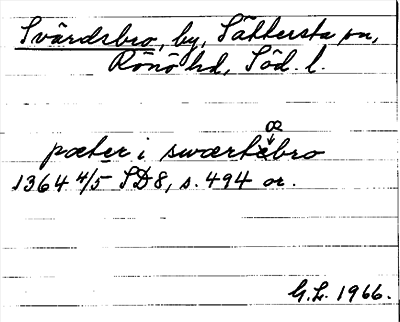 Svärdsbro, by, Sättersta sn,
Rönö hd, Söd. l.
œ
pœter i swærtebro
1364 4/5 SD 8, s. 494 or.
G.L. 1966.